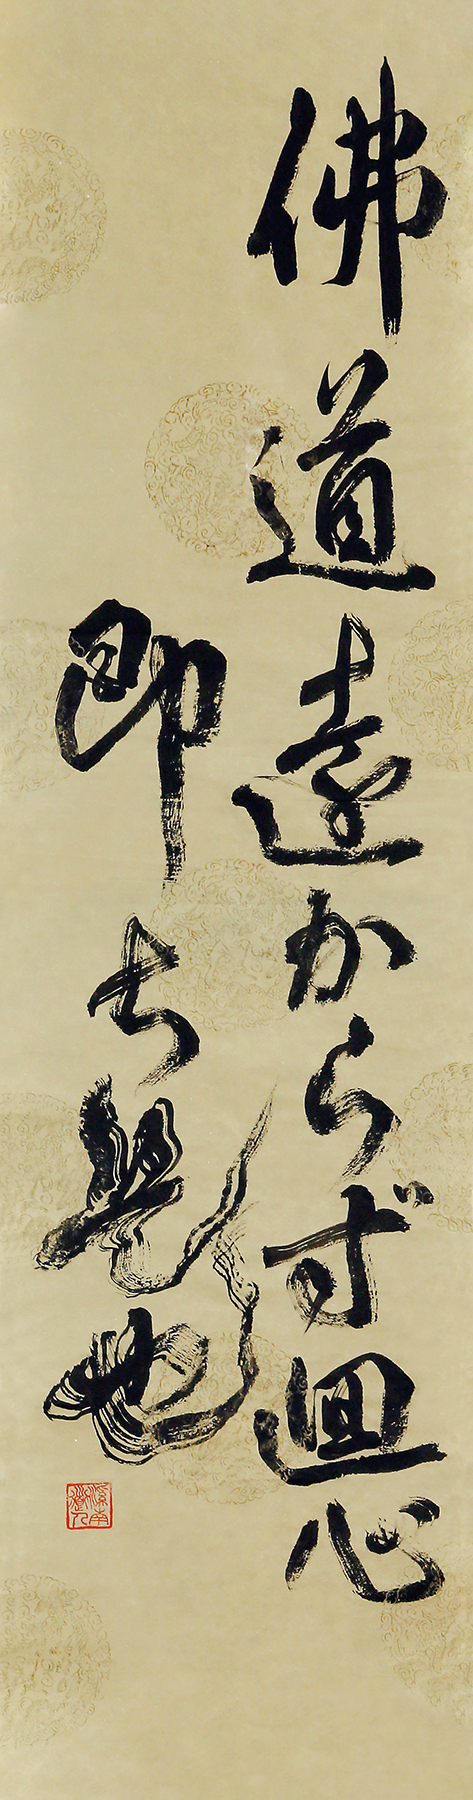 佛道遠からず廻心
即ち是也